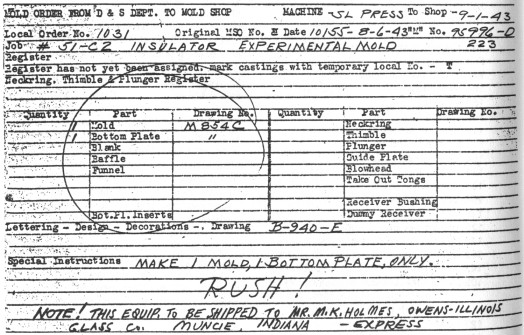 MOLD ORDER FROM D & S DEPT. TO MOLD SHOP MACHINE - SL PRESS To Shop - 9-1-43
Local Order No. 1031 Original MSO No. & Date 10155-8-6-43 "M" No. 95996-D
Job # 51-C2 INSULATOR EXPERIMENTAL MOLD 223
Register
Register has not yet been assigned, mark castings with temporary local No. - T
Neckring, Thimble & Plunger Register
Quantity Part Drawing No. Quantity Part Drawing No.
1 Mold M854C Neckring
1 Bottom Plate " Thimble
Blank Plunger
Baffle Guide Plate
Funnel Blowhead
Take Out Tongs
Receiver Bushing
Bot.Pl. Inserts Dummy Receiver
Lettering - Design - Decorations - Drawing B-940-E
Special Instructions MAKE 1 MOLD, 1 BOTTOM PLATE, ONLY.
RUSH!
NOTE! THIS EQUIP. TO BE SHIPPED TO MR. M.K. HOLMES, OWENS-ILLINOIS
GLASS CO. MUNCIE, INDIANA - EXPRESS